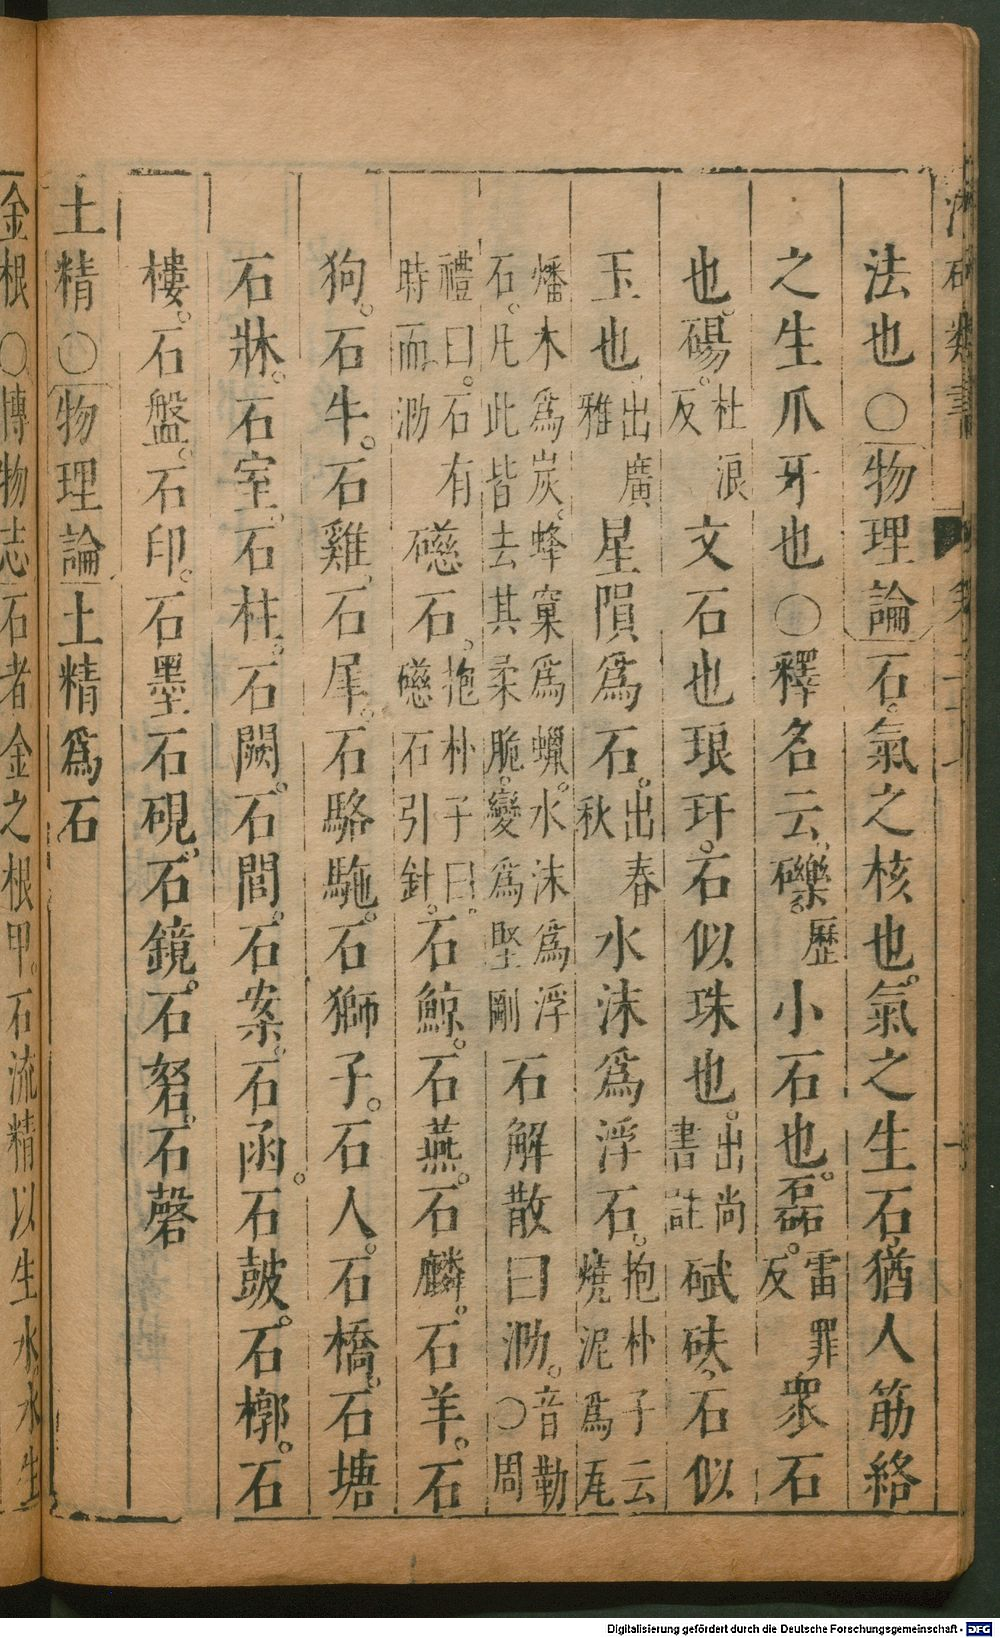 確類書
法也○物理論石。氣之核也。氣之生石。猶人筋絡
之生爪牙也○釋名云。礫。歷小石也。磊。雷罪反衆石
也。碭。杜浪反文石也琅玕。石似珠也。出尚書註碔砆。石似
玉也。出廣雅星隕爲石。出春秋水沫爲浮石。抱朴子云燒泥爲瓦
燔木爲炭。蜂窠爲蠟。水沫爲浮石。凡此皆去其柔脆。變爲堅剛石解散曰泐。音勒○周
禮曰。石有時而泐礠石。抱朴子曰。礠石引針。石鯨。石燕。石麟。石羊。石
狗。石牛。石雞。石犀。石駱駞。石獅子。石人。石橋。石塘
石牀。石室。石柱。石闕。石閭。石案。石函。石鼓。石槨。石
樓。石盤。石印。石墨石硯。石鏡。石弩。石磬
土精○物理論土精爲石
金根○博物志石者金之根甲。石流精以生水。水生
Digitalisierung gefördert durch die Deutsche Forschungsgemeinschaft - DFG